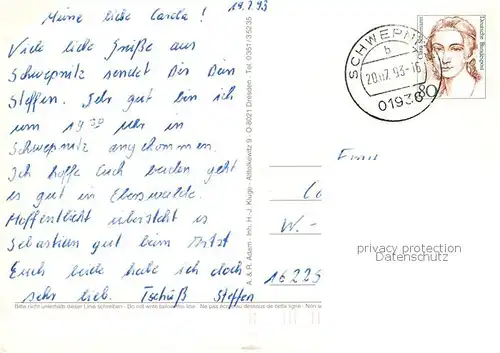 19.7.93
Meine liebe Carola!
Viele liebe Grüße aus
Schwepnitz sendet Dir Dein
Steffen. Sehr gut bin ich
um 19⁰⁰ Uhr in
Schwepnitz angekommen.
Ich hoffe Euch beiden geht
es gut in Eberswalde.
Hoffentlicht übersteht es
Sebastian gut beim Arzt
Euch beide habe ich doch
sehr lieb. Tschüß Steffen
Bitte nicht unterhalb dieser Linie schreiben - Do not write below this line - Ne pas écrire au dessous de cette ligne - Non
A. & R. Adam - Inh. H.-J. Kluge - Alttolkewitz 9 - O-8021 Dresden - Tel. 0351/35235
SCHWEPNITZ
b
20.07.93-16
01936
Deutsche Bundespost
80
Frau
W.-
16225
privacy protection
Datenschutz